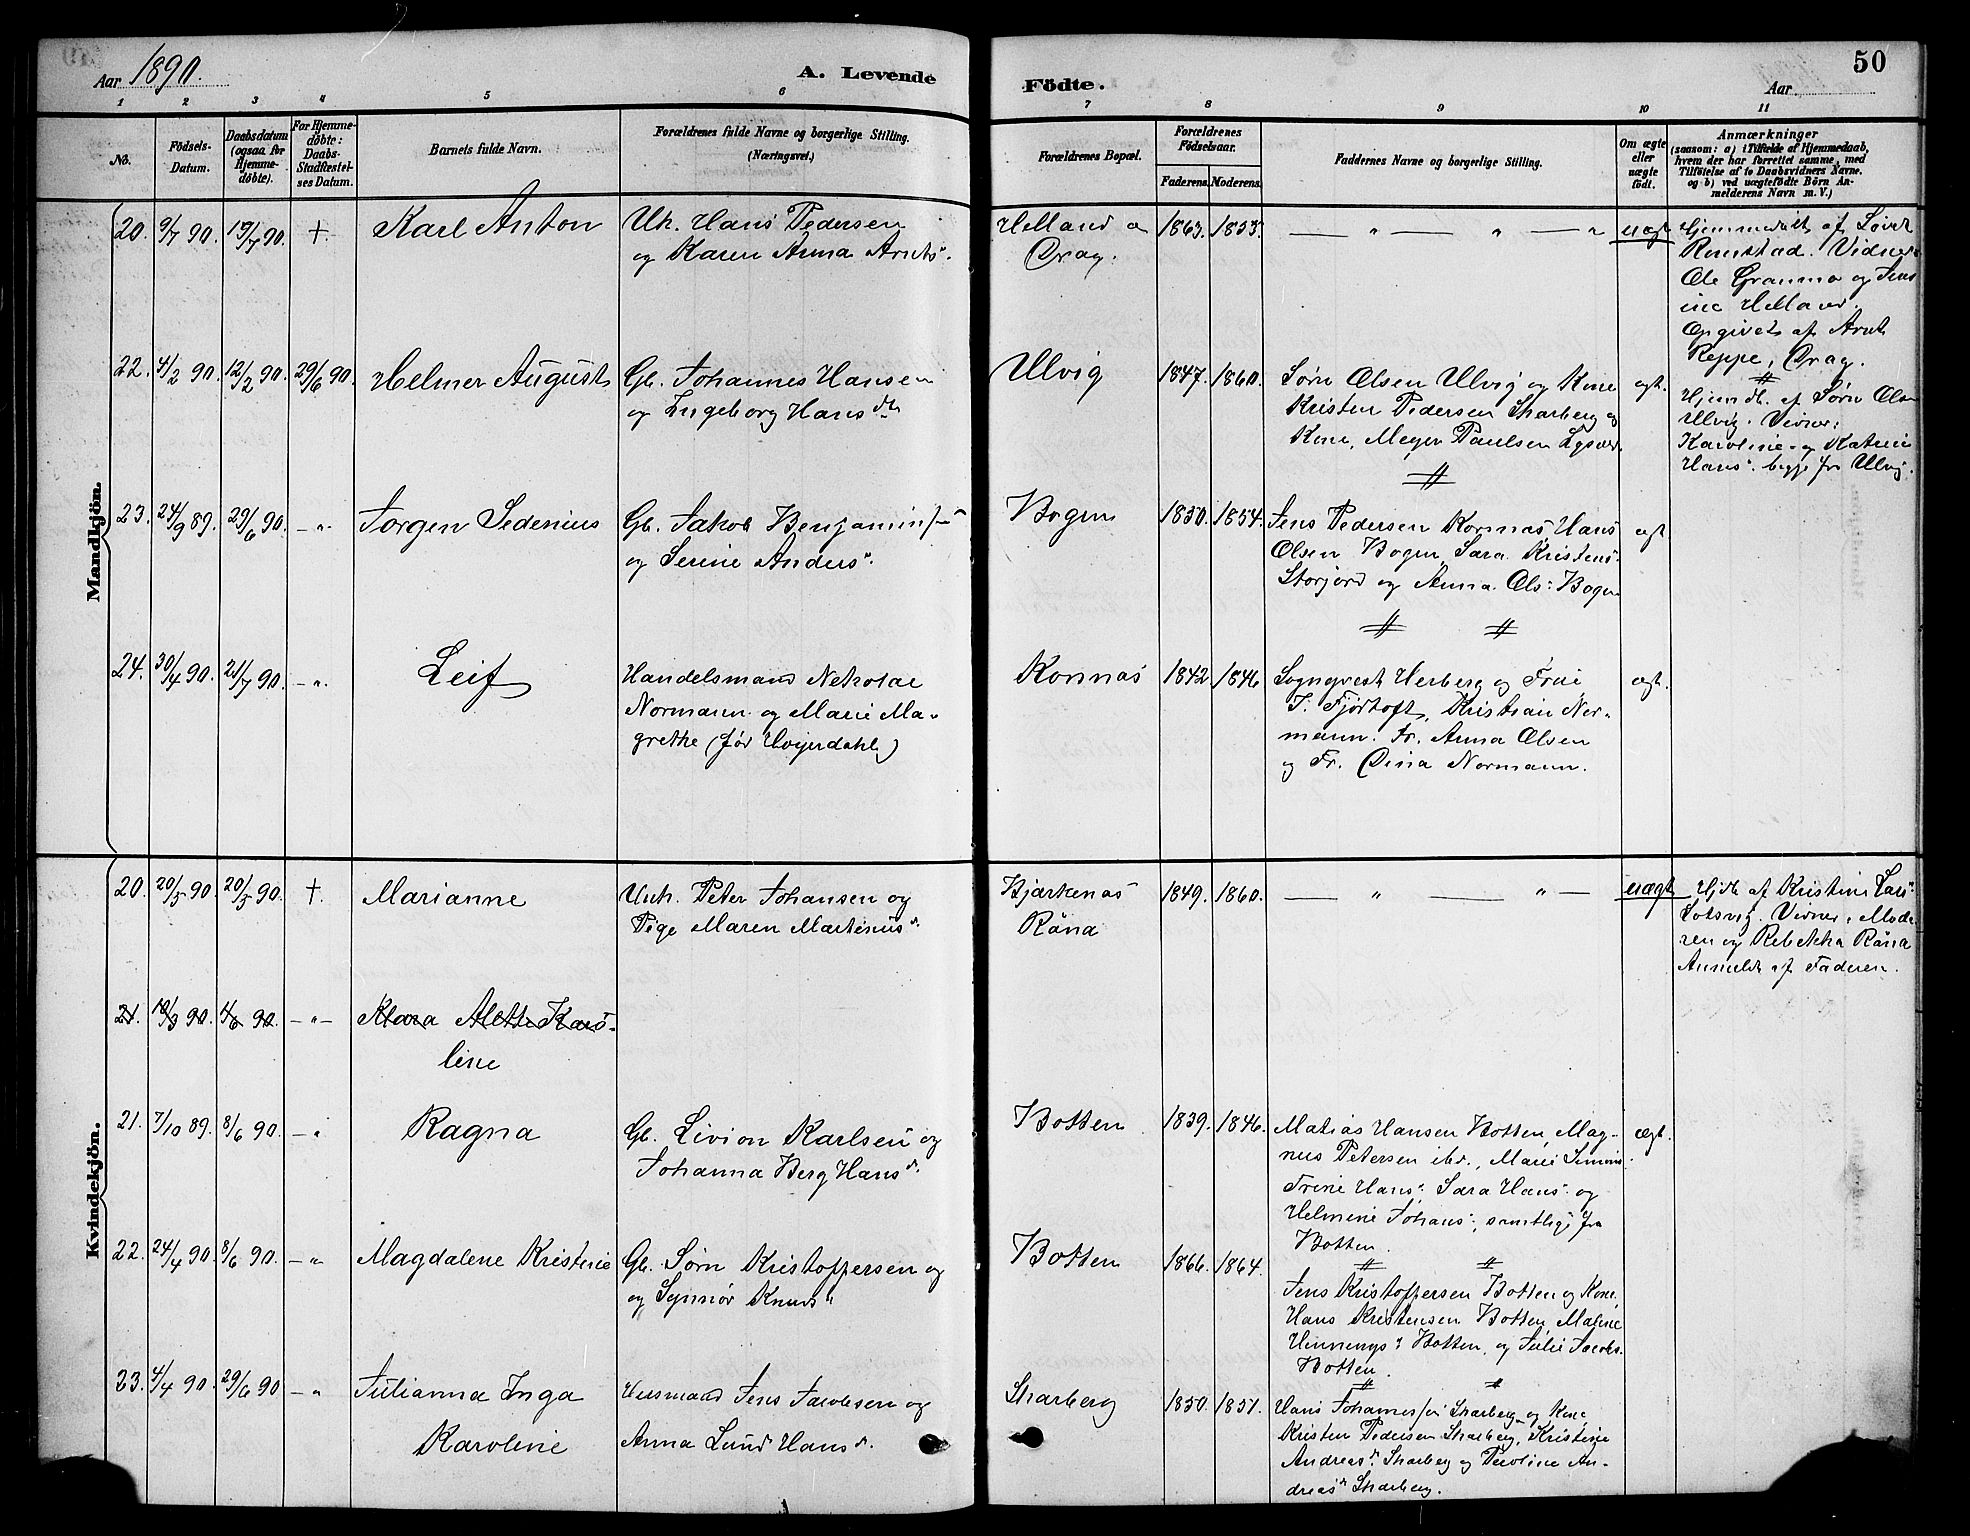 50
Aar 1890.
A. Levende
Födte.
Aar
1 2 3 4 5 6 7 8 9 10 11
No.
Födsels-
Datum.
Daabsdatum
(ogsaa for
Hjemme-
döbte).
For Hjemme-
döbte:
Daabs-
Stadfæstel-
ses Datum.
Barnets fulde Navn.
Forældrenes fulde Navne og borgerlige Stilling.
(Næringsvei.)
Forældrenes Bopæl.
Forældrenes
Födselsaar.
Faderens. Moderens.
Faddernes Navne og borgerlige Stilling.
Om ægte
eller
uægte
født.
Anmærkninger
(saasom: a) i Tilfælde af Hjemmedaab,
hvem der har forrettet samme, med
Tilføielse af to Daabsvidners Navne.
og b) ved uægtefödte Börn An-
melderens Navn m. V.)
Mandkjön.
20. 9/7 90. 19/7 90. +. Karl Anton
Uk. Hans Pedersen
og Karen Anna Arnts".
Helland o
Drag.
1863. 1853.
— " — " — "
uægt
Hjemmedøbt af Sivert
Romstad. Vidner
Ole Grannmo og Jens
ine Helland.
Opgivet af Arnt
Reppe, Drag.
22. 4/2 90. 12/2 90. 29/6 90. Helmer August
Gb. Johannes Hansen
og Ingeborg Hans dtr
Ulvig
1847. 1860.
Sørn Olsen Ulvig og Kone
Kristen Pedersen Skarberg og
Kone, Meyer Paulsen
ægt.
Hjemdb. af Sørn Olsen
Ulvig. Vidner:
Karoline og Katrine
Hans". begge fra Ulvig.
23. 24/9 89. 29/6 90. —"— Jorgen Sedenius
Gb. Jakob Benjamins
og Serine Anders".
Bogen
1850. 1854.
Jens Pedersen Kornæs, Hans
Olsen Bogen, Sara Kristens"
Storjord og Anna Ols: Bogen
ægt
24. 30/4 90. 21/7 90. —"— Leif
Handelsmand Nekolai
Normann og Marie Ma-
grethe (før Hvijerdahl)
Kornæs
1842 1846
Sogneprest Herberg og Frue
J. Fjørtoft, Kristian Nor-
mann. Fr. Anna Olsen
og Fr. Dina Normann.
ægt.
Kvindekjön.
20. 20/5 90. 20/5 90. +. Marianne
Unk. Peter Johansen og
Pige Maren Martinus".
Bjarkenæs
Råna
1849. 1860.
— " — " —
uægt
Hjdb af Kristine Lars"
Lotsvig. Vidner: Mode-
ren og Rebekka Råna
Anmeldt af Faderen.
21. 10/3 90. 4/6 90. —"— Klara Alette Karo-
line
21. 7/10 89. 8/6 90. —" Ragna
Gb. Livion Karlsen og
Johanna Berg Hans d.
Botten
1839. 1846.
Matias Hansen Botten, Mag-
nus Petersen ibd., Marie Simons
Trine Hans". Sara Hans". og
Helmine Johans"., samtlige fra
Botten.
ægt.
22. 24/4 90. 8/6 90. —" Magdalene Kristine
Gb. Sørn Kristoffersen og
og Synnør Knuds"
Botten
1866. 1864.
Jens Kristoffersen Botten og Kone,
Hans Kristensen Botten Maline
Hennings" Botten, og Julie Jacobs.
Botten.
23. 4/4 90. 29/6 90 —" Julianna Inga
Karoline
Husmand Jens Jacobsen og
Anna Lund Hans d.
Skarberg
1850. 1851.
Hans Johannes/en Skarberg og Kone
Kristen Pedersen Skarberg, Kristine
Andreas". Skarberg og Peroline An-
dreas" Skarberg.